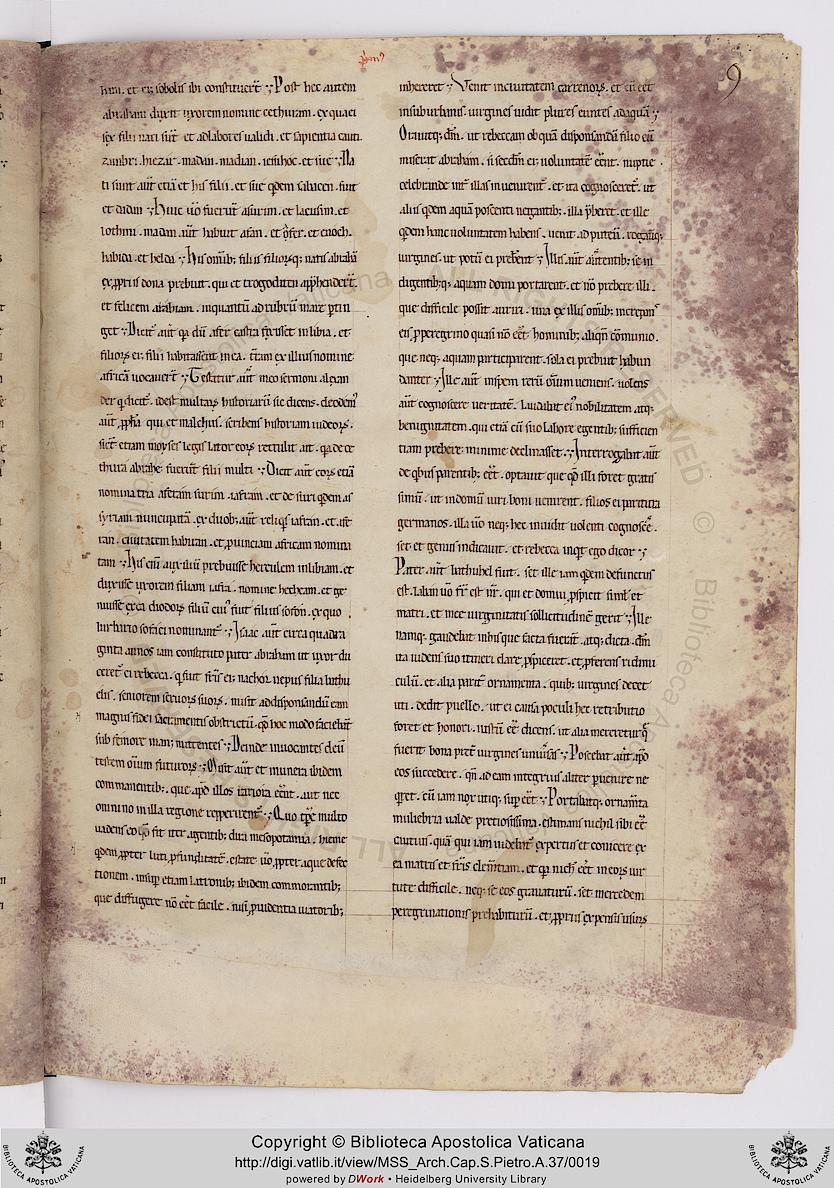 p̄m⁹
9
hā̄m . et ei⁹ sobolis ibi constituerēt . Post hec autem
abraham duxit uxorem nomine cethuram . ex qua ei
sex filii nati sūt . et ad labores ualidi . et sapientia cauti
zambri . hiezar . madan . madian . iosuhoc . et sue . Na
ti sunt aūt etiā et his filii . et sue qdem sabacen . fuit
et dadan . Huic uō fuerunt asurim . et latusim . et
lothim . madan aūt habuit afan . et ofer . et enoch .
habida . et helda . His omīb; filiis filiorūq; natis abrahā
expriis dona prebuit . qui et trogoditen apphenderēt .
et felicem arabiam . inquantū ad rubrum mare ptin
get . Dicit aūt qa dū . afer castra fecisset in libia . et
filiorū ei⁹ filii habitassent in ea . t̄ram ex illius nomine
africā uocauerēt . Testatur aūt meo sermoni alexan
der q dicit . id est multarū historiarū sic dicens . cleodem⁹
aūt pphā qui et malchus . scribens historiam iudeorū .
sicut etiam moyses legis lator eorū rettulit ait . qa de ce
thura abrahe fuerūt filii multi . Dicit aūt eorū etiā
nomina tria aferam surim . iafram . et de suri qdem as
syriam nuncupatā . ex duob; aūt reliqs iafran . et afe
ran . ciuitatem habitam . et puinciam africam nomina
tam . His enī auxiliū prebuisse herculem in libiam . et
duxisse uxorem filiam iafra . nomine hecheam . et ge
nuisse ex ea diodorū filiū cui⁹ fuit filius soforī . ex quo
barbario sofaci nominant⁹ . Isaac aūt circa quadra
ginta annos iam constituto pater abraham ut uxor du
ceret⁹ ei rebecca . q fuit fr̄is ei⁹ nachor nepus filia bathu
elis . seniorem seruorū suorū . misit ad disponsandū eam
magnis fidei sacramentis obstrictū . qd hoc modo faciebāt
sub femore man⁹ mittentes . Deinde inuocantes deū
testem omīum futurorū . Misit aūt et munera ibidem
commanentib; . que apd illos rariora eēnt . aut nec
omnino in illa regione repperirent⁹ . Quo tp̄re multo
uadens eo qd sit iter agentib; dira mesopotamia . hieme
qdem ppter luti pfunditatē . estate uō ppter aque defec
tionem . insup etiam latronib; ibidem commorantib;
que diffugere nō eēt facile . nisi puidentia uiatorib;
inhereret . Venit in ciuitatem carrenorū . et cū eēt
in suburbanis . uirgines uidit plures euntes ad aquā .
Orauitq; dm̄ . ut rebeccam ob quā disponsandā filio eū
miserit abraham . si scdm ei⁹ uoluntatē eēnt . nuptie
celebrande int⁹ illas inuenirent⁹ . et ita cognosceret⁹ . ut
aliis qdem aquā poscenti negantib; . illa p̄beret . et ille
qdem hanc uoluntatem habens . uenit ad puteū . rogauitq;
uirgines . ut potū ei prebent⁹ . Illis aūt auertentib; se in
digentib;q; aquam domi portarent . et nō prebere illi .
que difficile possit auriri . una ex illis omīb; increpans
eis p peregrino quasi nō eēt hominib; aliqua cōmunio .
que neq; aquam participarent . sola ei prebuit habun
danter . Ille aūt in spem rerū omīum ueniens . uolens
aūt cognoscere ueritatē . Laudabat ei⁹ nobilitatem atq;
benignitatem . qui etiā cū suo labore egentib; sufficien
tiam prebere minime declinasset . Interrogabat aūt
de qbus parentib; eēt . optauit que qd illi foret gratis
simū . ut in domū uiri boni uenirent . filios ei paritura
germanos . illa uō neq; hec inuidit uolenti cognoscē⁹ .
set et genus indicauit . et rebecca inqt ego dicor .
Pater aūt bathuhel fuit . set ille iam qdem defunctus
est . laban uō fr̄ est nr̄ . qui et domui pspicit simul et
matri . et mee uirginitatis sollicitudinē gerit . Ille
namq; gaudebat in his que facta fuerāt . atq; dicta . dm̄
ita uidens suo itineri clare pspiceret . et pferens ridimi
culū . et alia parit⁹ ornamenta . quib; uirgines decet
uti . dedit puelle . ut ei causa poculi hec retributio
foret et honori . iustū eē dicens . ut alia mereretur q̄
fuerit bona pret⁹ uirgines uniu⁹sas . Poscebat aūt apd
eos succedere . qn̄ ad eam integrius aliter puenire ne
qret . cū iam nox utiq; sup eēt . Portabatq; ornam̄ta
muliebria ualde pretiosissima . estimans nichil sibi eē
ciutius . quā qui iam uidebat⁹ expertus et conicere ex
ea matris et fr̄is clem̄tiam . et qa nich⁹ eēt in eorū uir
tute difficile . neq; se eos grauaturū . set mercedem
peregrinationis prehabiturū . et ppriis expensis usurū
Copyright © Biblioteca Apostolica Vaticana
http://digi.vatlib.it/view/MSS_Arch.Cap.S.Pietro.A.37/0019
powered by DWork • Heidelberg University Library